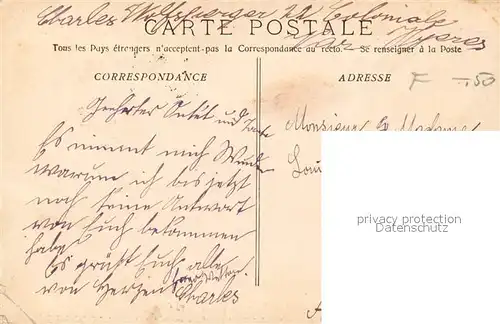 Charles 22 Coloniale
CARTE POSTALE
Var Hyères
Tous les Pays étrangers n'acceptent pas la Correspondance au recto. Se renseigner à la Poste
CORRESPONDANCE
ADRESSE
F -.50
Geehrter Onkel und Tante
Es nimmt mich Wunder
warum ich bis jetzt
noch keine Antwort
von Euch bekommen
habe
Es grüßt Euch alle
von Herzen Euer
Charles
Monsieur & Madame
Loui
privacy protection
Datenschutz